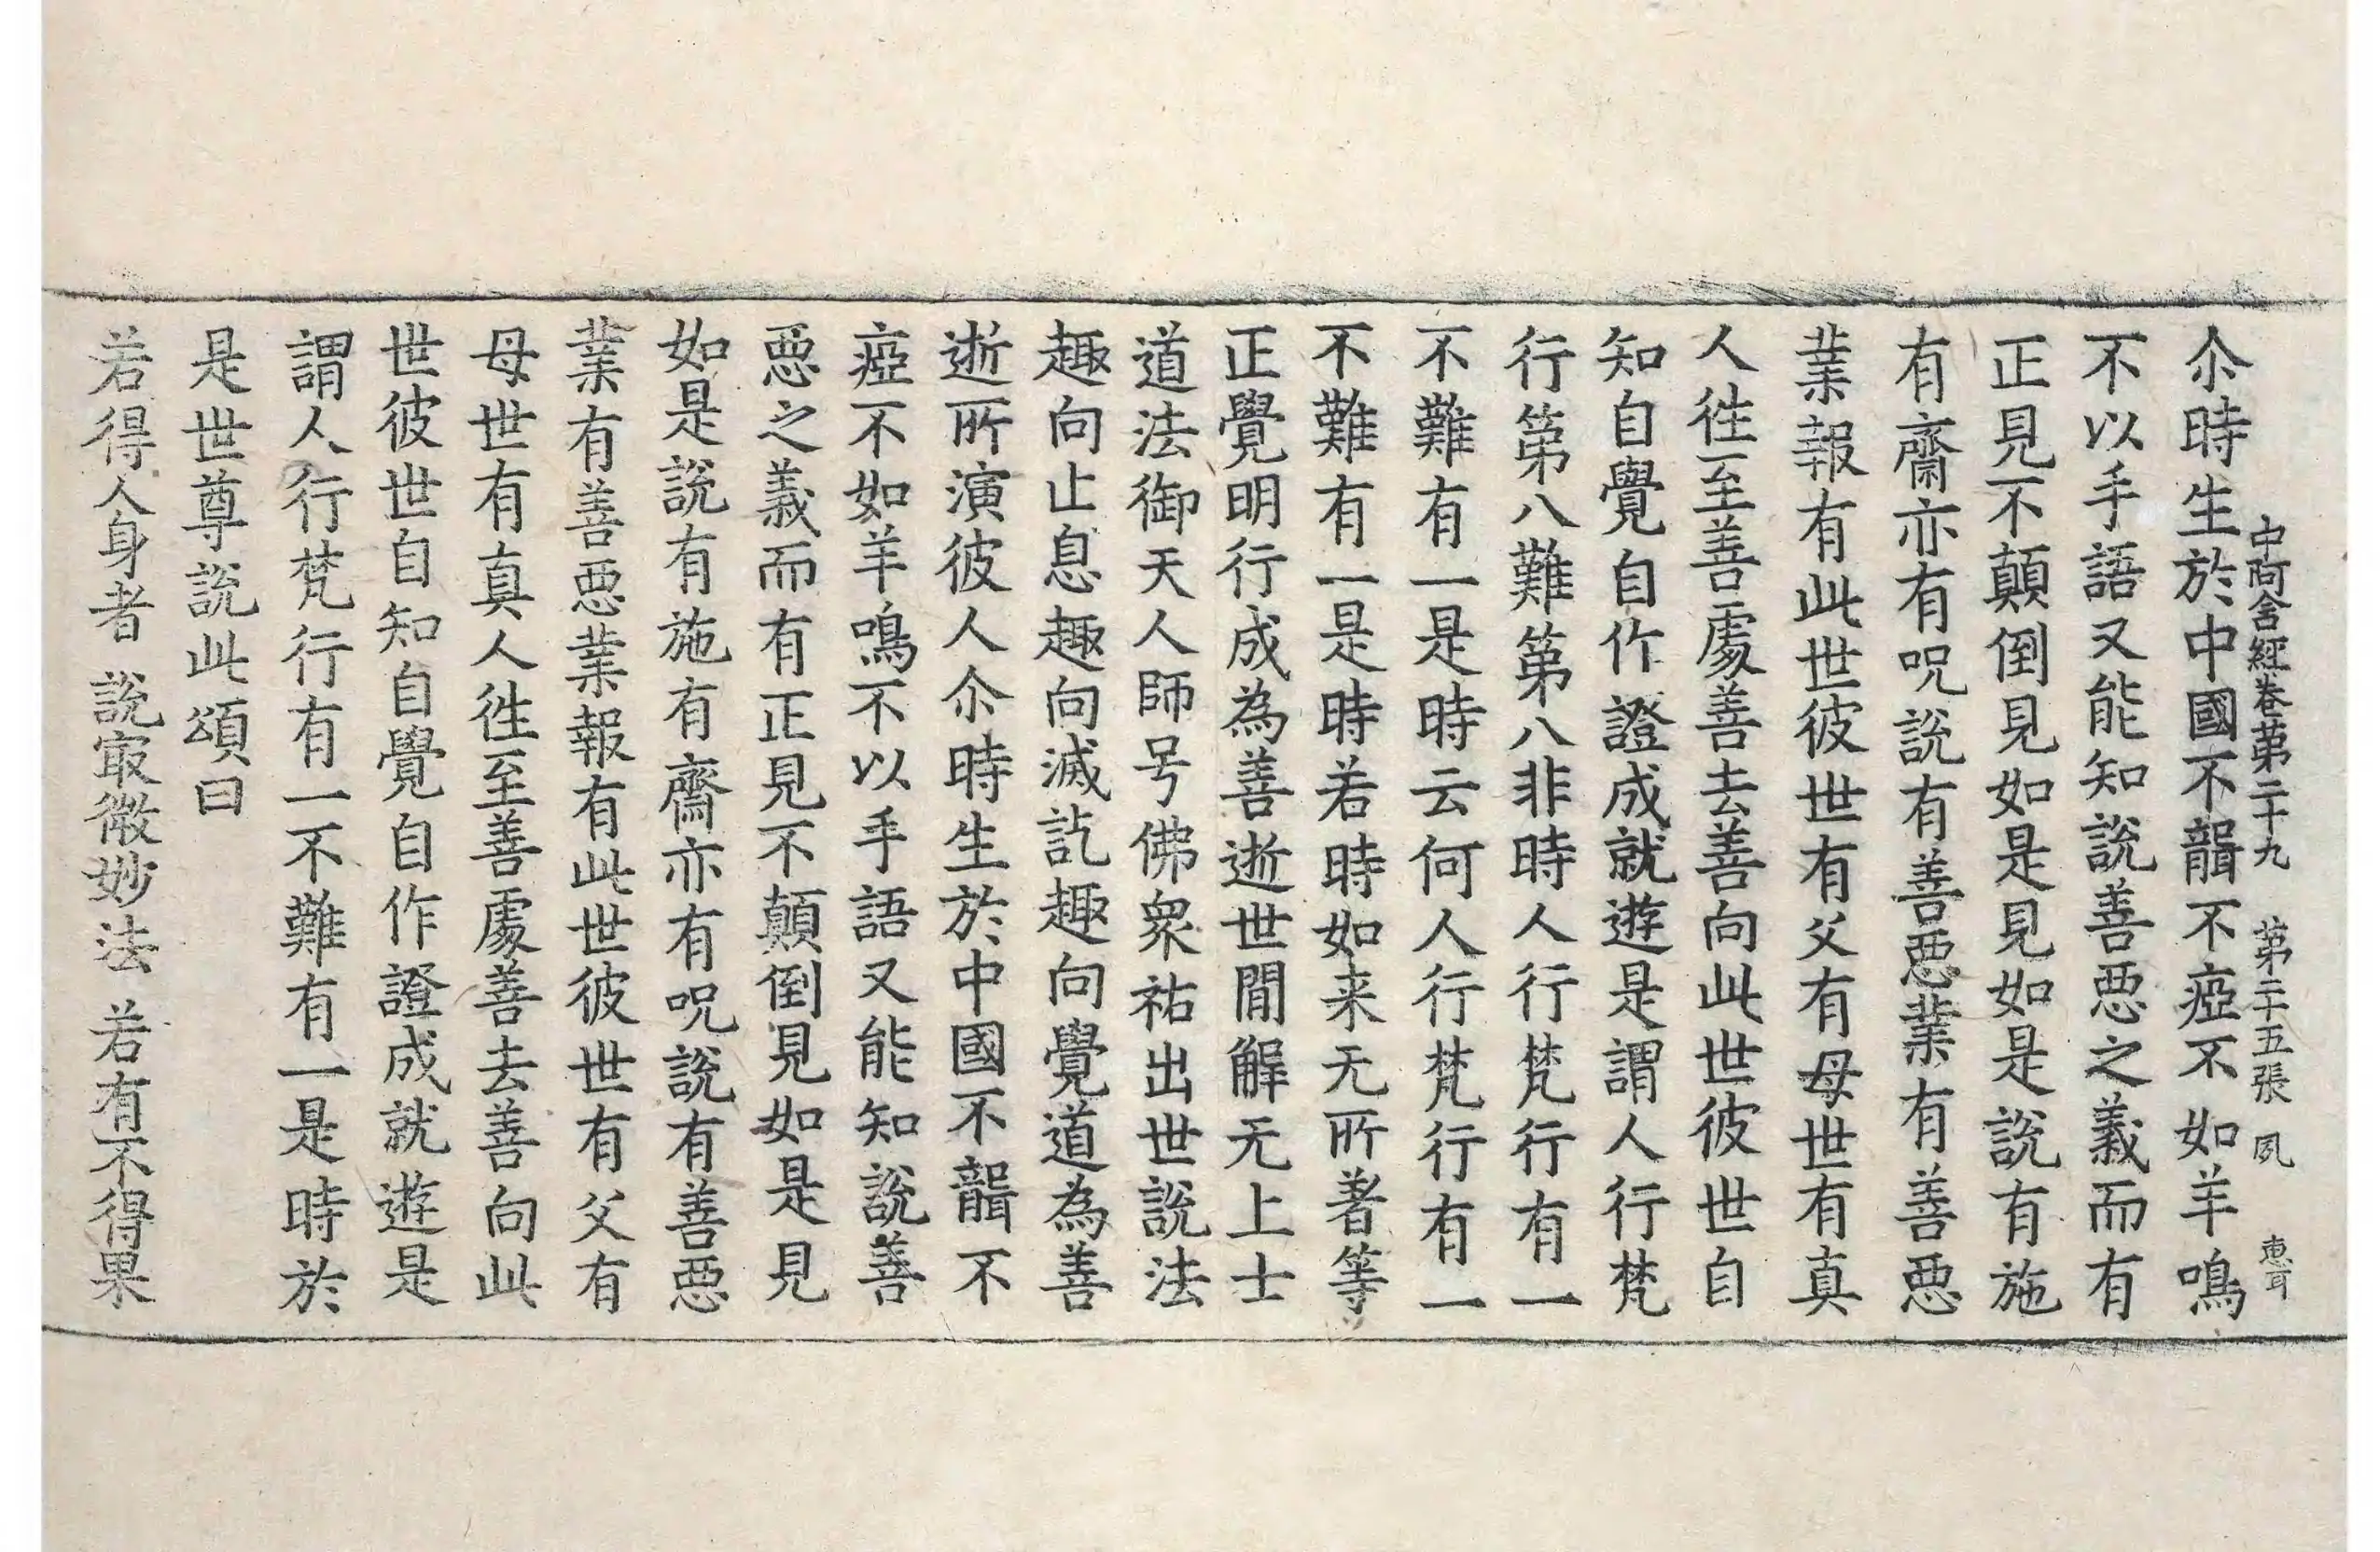 中阿含經卷第二十九 第二十五張 夙 惠可
尒時生於中國不聾不瘂不如羊鳴
不以手語又能知說善惡之義而有
正見不顛倒見如是見如是說有施
有齋亦有呪說有善惡業有善惡
業報有此世彼世有父有母世有真
人徃至善處善去善向此世彼世自
知自覺自作證成就遊是謂人行梵
行第八難第八非時人行梵行有一
不難有一是時云何人行梵行有一
不難有一是時若時如来无所著等
正覺明行成為善逝世間解无上士
道法御天人師号佛衆祐出世說法
趣向止息趣向滅訖趣向覺道為善
逝所演彼人尒時生於中國不聾不
瘂不如羊鳴不以手語又能知說善
惡之義而有正見不顛倒見如是見
如是說有施有齋亦有呪說有善惡
業有善惡業報有此世彼世有父有
母世有真人徃至善處善去善向此
世彼世自知自覺自作證成就遊是
謂人行梵行有一不難有一是時於
是世尊說此頌曰
若得人身者 說㝡微妙法 若有不得果